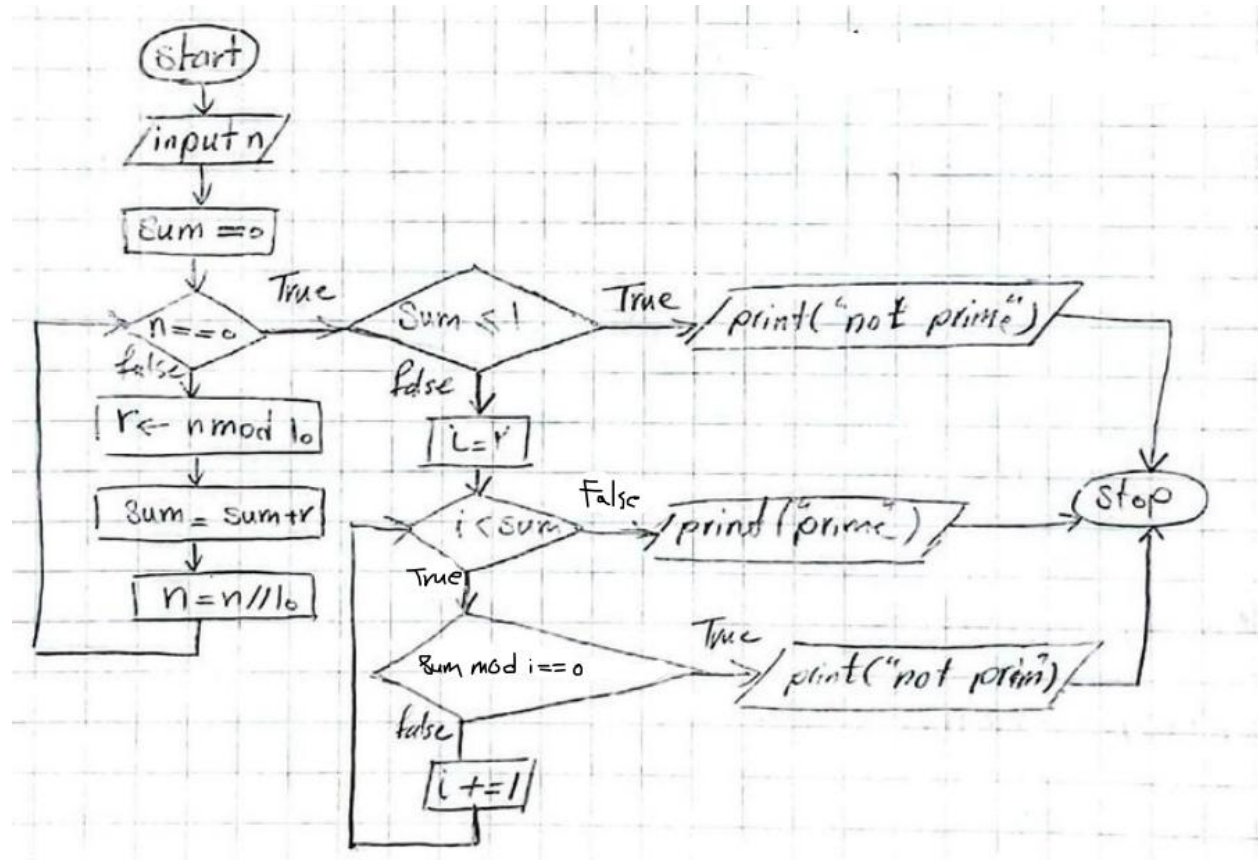 start
input n
sum == 0
n == 0
True
false
r ← n mod 10
sum = sum + r
n = n // 10
sum ≤ 1
True
print("not prime")
false
i = r
i < sum
False
print("prime")
True
sum mod i == 0
True
print("not prim")
false
i += 1
stop